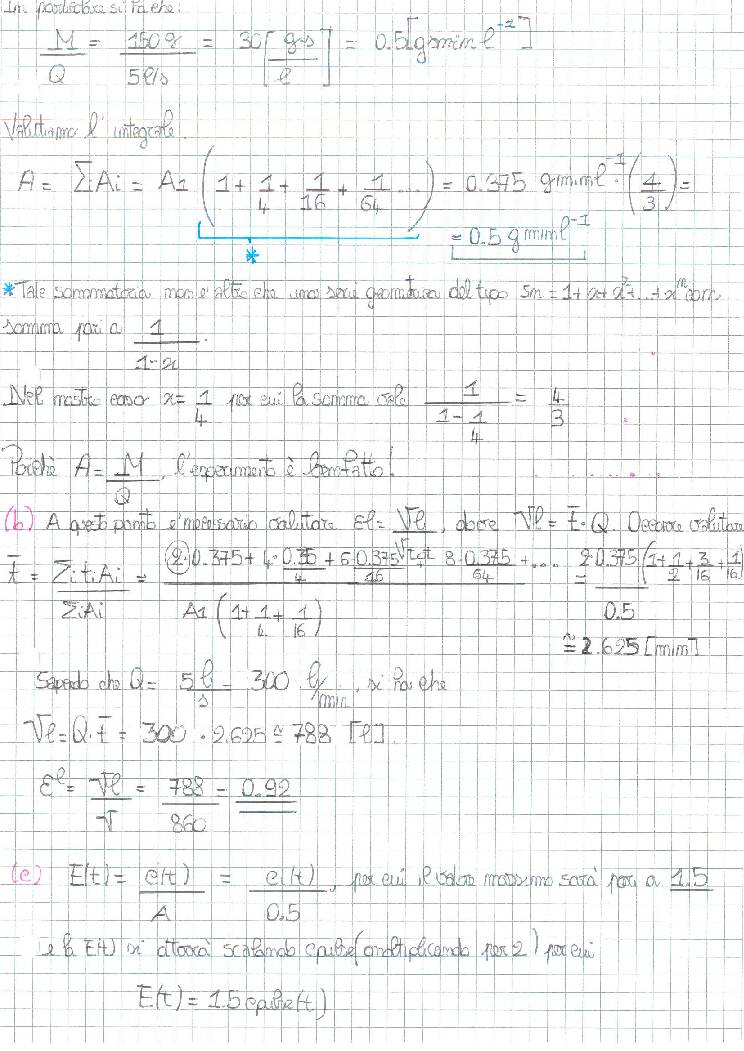 In particolare si ha che:
M/Q = 150 g / 5 l/s = 30 [g·s / l] = 0.5 [g min l^-1]
Valutiamo l'integrale.
A = ΣAi = A1 (1 + 1/4 + 1/16 + 1/64 ...) = 0.375 g min l^-1 · (4/3) =
*
= 0.5 g min l^-1
* Tale sommatoria non è altro che una serie geometrica del tipo Sn = 1 + x + x^2 + .. + x^n con
somma pari a 1/(1-x).
Nel nostro caso x = 1/4 per cui la somma vale 1/(1 - 1/4) = 4/3
Poichè A = M/Q, l'esperimento è ben fatto!
(b) A questo punto è necessario valutare εl = Vl/Vtot, dove Vl = t̄ · Q. Occorre valutare
t̄ = Σi ti Ai / Σi Ai = 2·0.375 + 4·0.35/4 + 6·0.375/16 + 8·0.375/64 + .... / A1 (1 + 1/4 + 1/16) ≅ 2·0.375 (1 + 1/2 + 3/16 + 1/16) / 0.5
≅ 2.625 [min]
Sapendo che Q = 5 l/s = 300 l/min, si ha che
Vl = Q·t̄ = 300 · 2.625 ≅ 788 [l].
εl = Vl/V = 788/860 = 0.92
(c) E(t) = c(t)/A = c(t)/0.5, per cui il valore massimo sarà pari a 1.5
e la E(t) si otterrà scalando cpulse (moltiplicando per 2) per cui
E(t) = 1.5 cpulse(t)